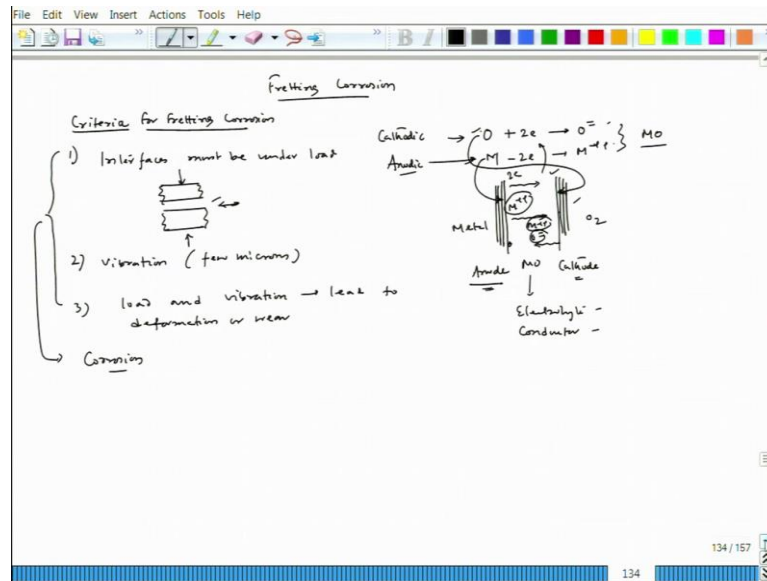 File Edit View Insert Actions Tools Help
B I
Fretting Corrosion
Criteria for Fretting Corrosion
1) Interfaces must be under load
2) vibration (few microns)
3) load and vibration → lead to
deformation or wear
Corrosion
Cathodic → O + 2e → O=
Anodic → M - 2e → M++
} MO
2e
M++
Metal
M++
O=
O2
Anode MO Cathode
Electrolyte -
Conductor -
134 / 157
134